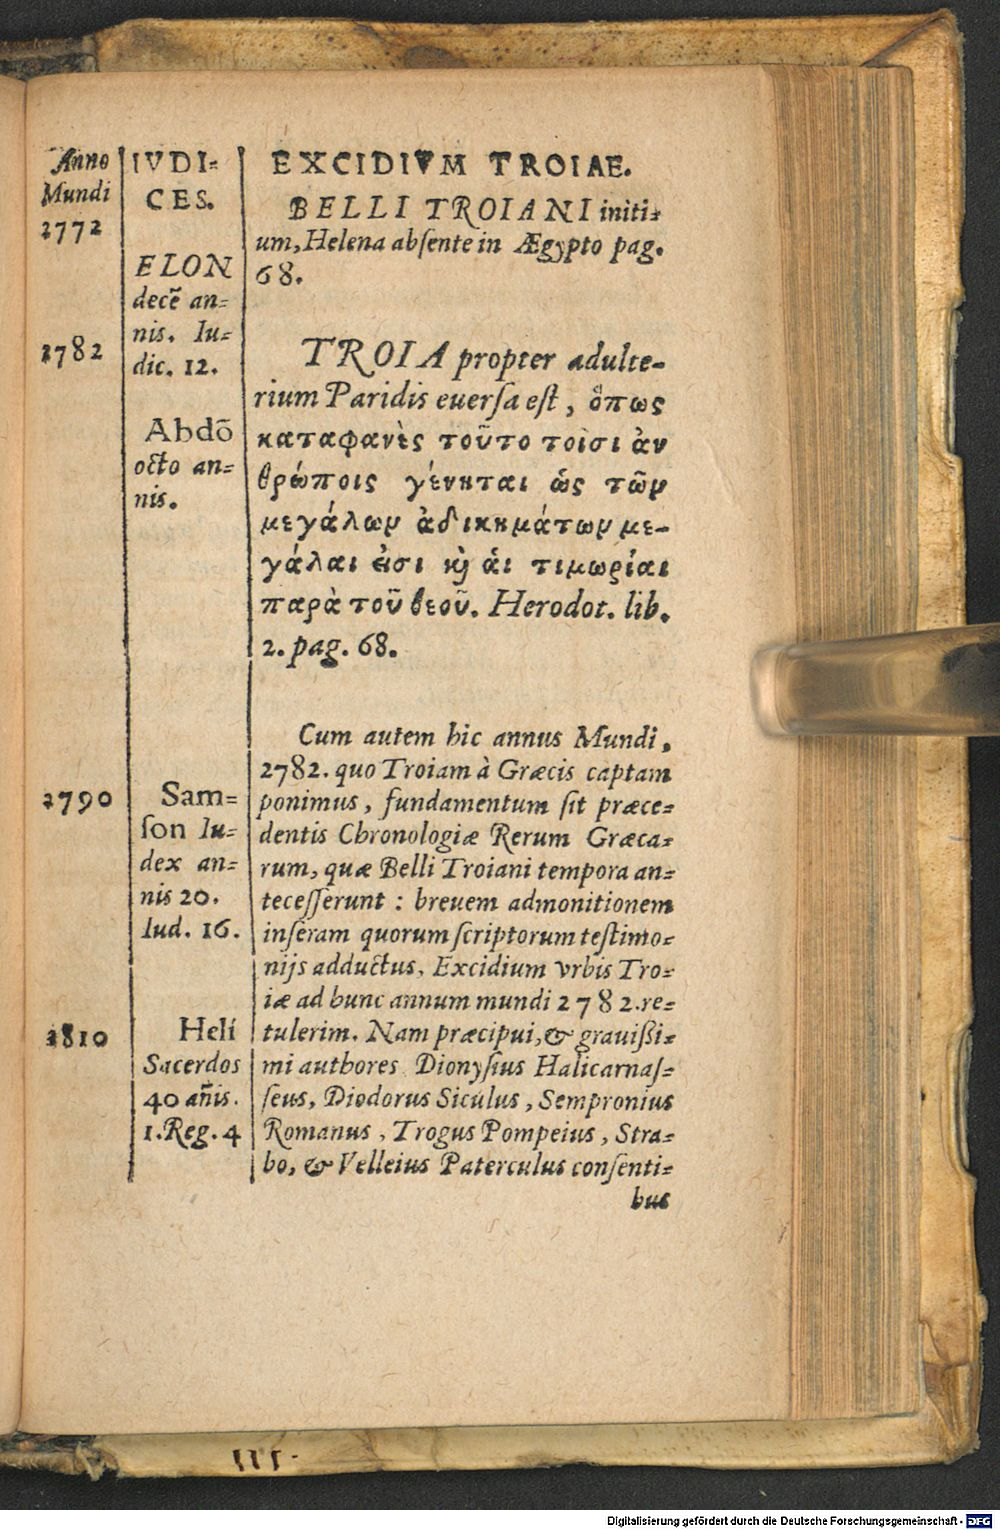 Anno
Mundi
2772
2782
2790
2810
IVDI-
CES.
ELON
decē an-
nis. Iu-
dic. 12.
Abdō
octo an-
nis.
Sam-
ſon Iu-
dex an-
nis 20.
Iud. 16.
Heli
Sacerdos
40 an̄is.
1. Reg. 4
EXCIDIVM TROIAE.
BELLI TROIANI initi-
um, Helena abſente in Ægypto pag.
68.
TROIA propter adulte-
rium Paridis euerſa eſt, ὅπως
καταφανὲς τοῦτο τοῖσι ἀν
θρώποις γένηται ὡς τῶν
μεγάλων ἀδικημάτων με-
γάλαι εἰσι καὶ ἁι τιμωρίαι
παρὰ τοῦ θεοῦ. Herodot. lib.
2. pag. 68.
Cum autem hic annus Mundi,
2782. quo Troiam à Græcis captam
ponimus, fundamentum ſit præce-
dentis Chronologiæ Rerum Græca-
rum, quæ Belli Troiani tempora an-
teceſſerunt : breuem admonitionem
inſeram quorum ſcriptorum teſtimo-
nijs adductus, Excidium vrbis Tro-
iæ ad hunc annum mundi 2782. re-
tulerim. Nam præcipui, & grauißi-
mi authores Dionyſius Halicarnaſ-
ſeus, Diodorus Siculus, Sempronius
Romanus, Trogus Pompeius, Stra-
bo, & Velleius Paterculus conſenti-
bus
Digitalisierung gefördert durch die Deutsche Forschungsgemeinschaft - DFG